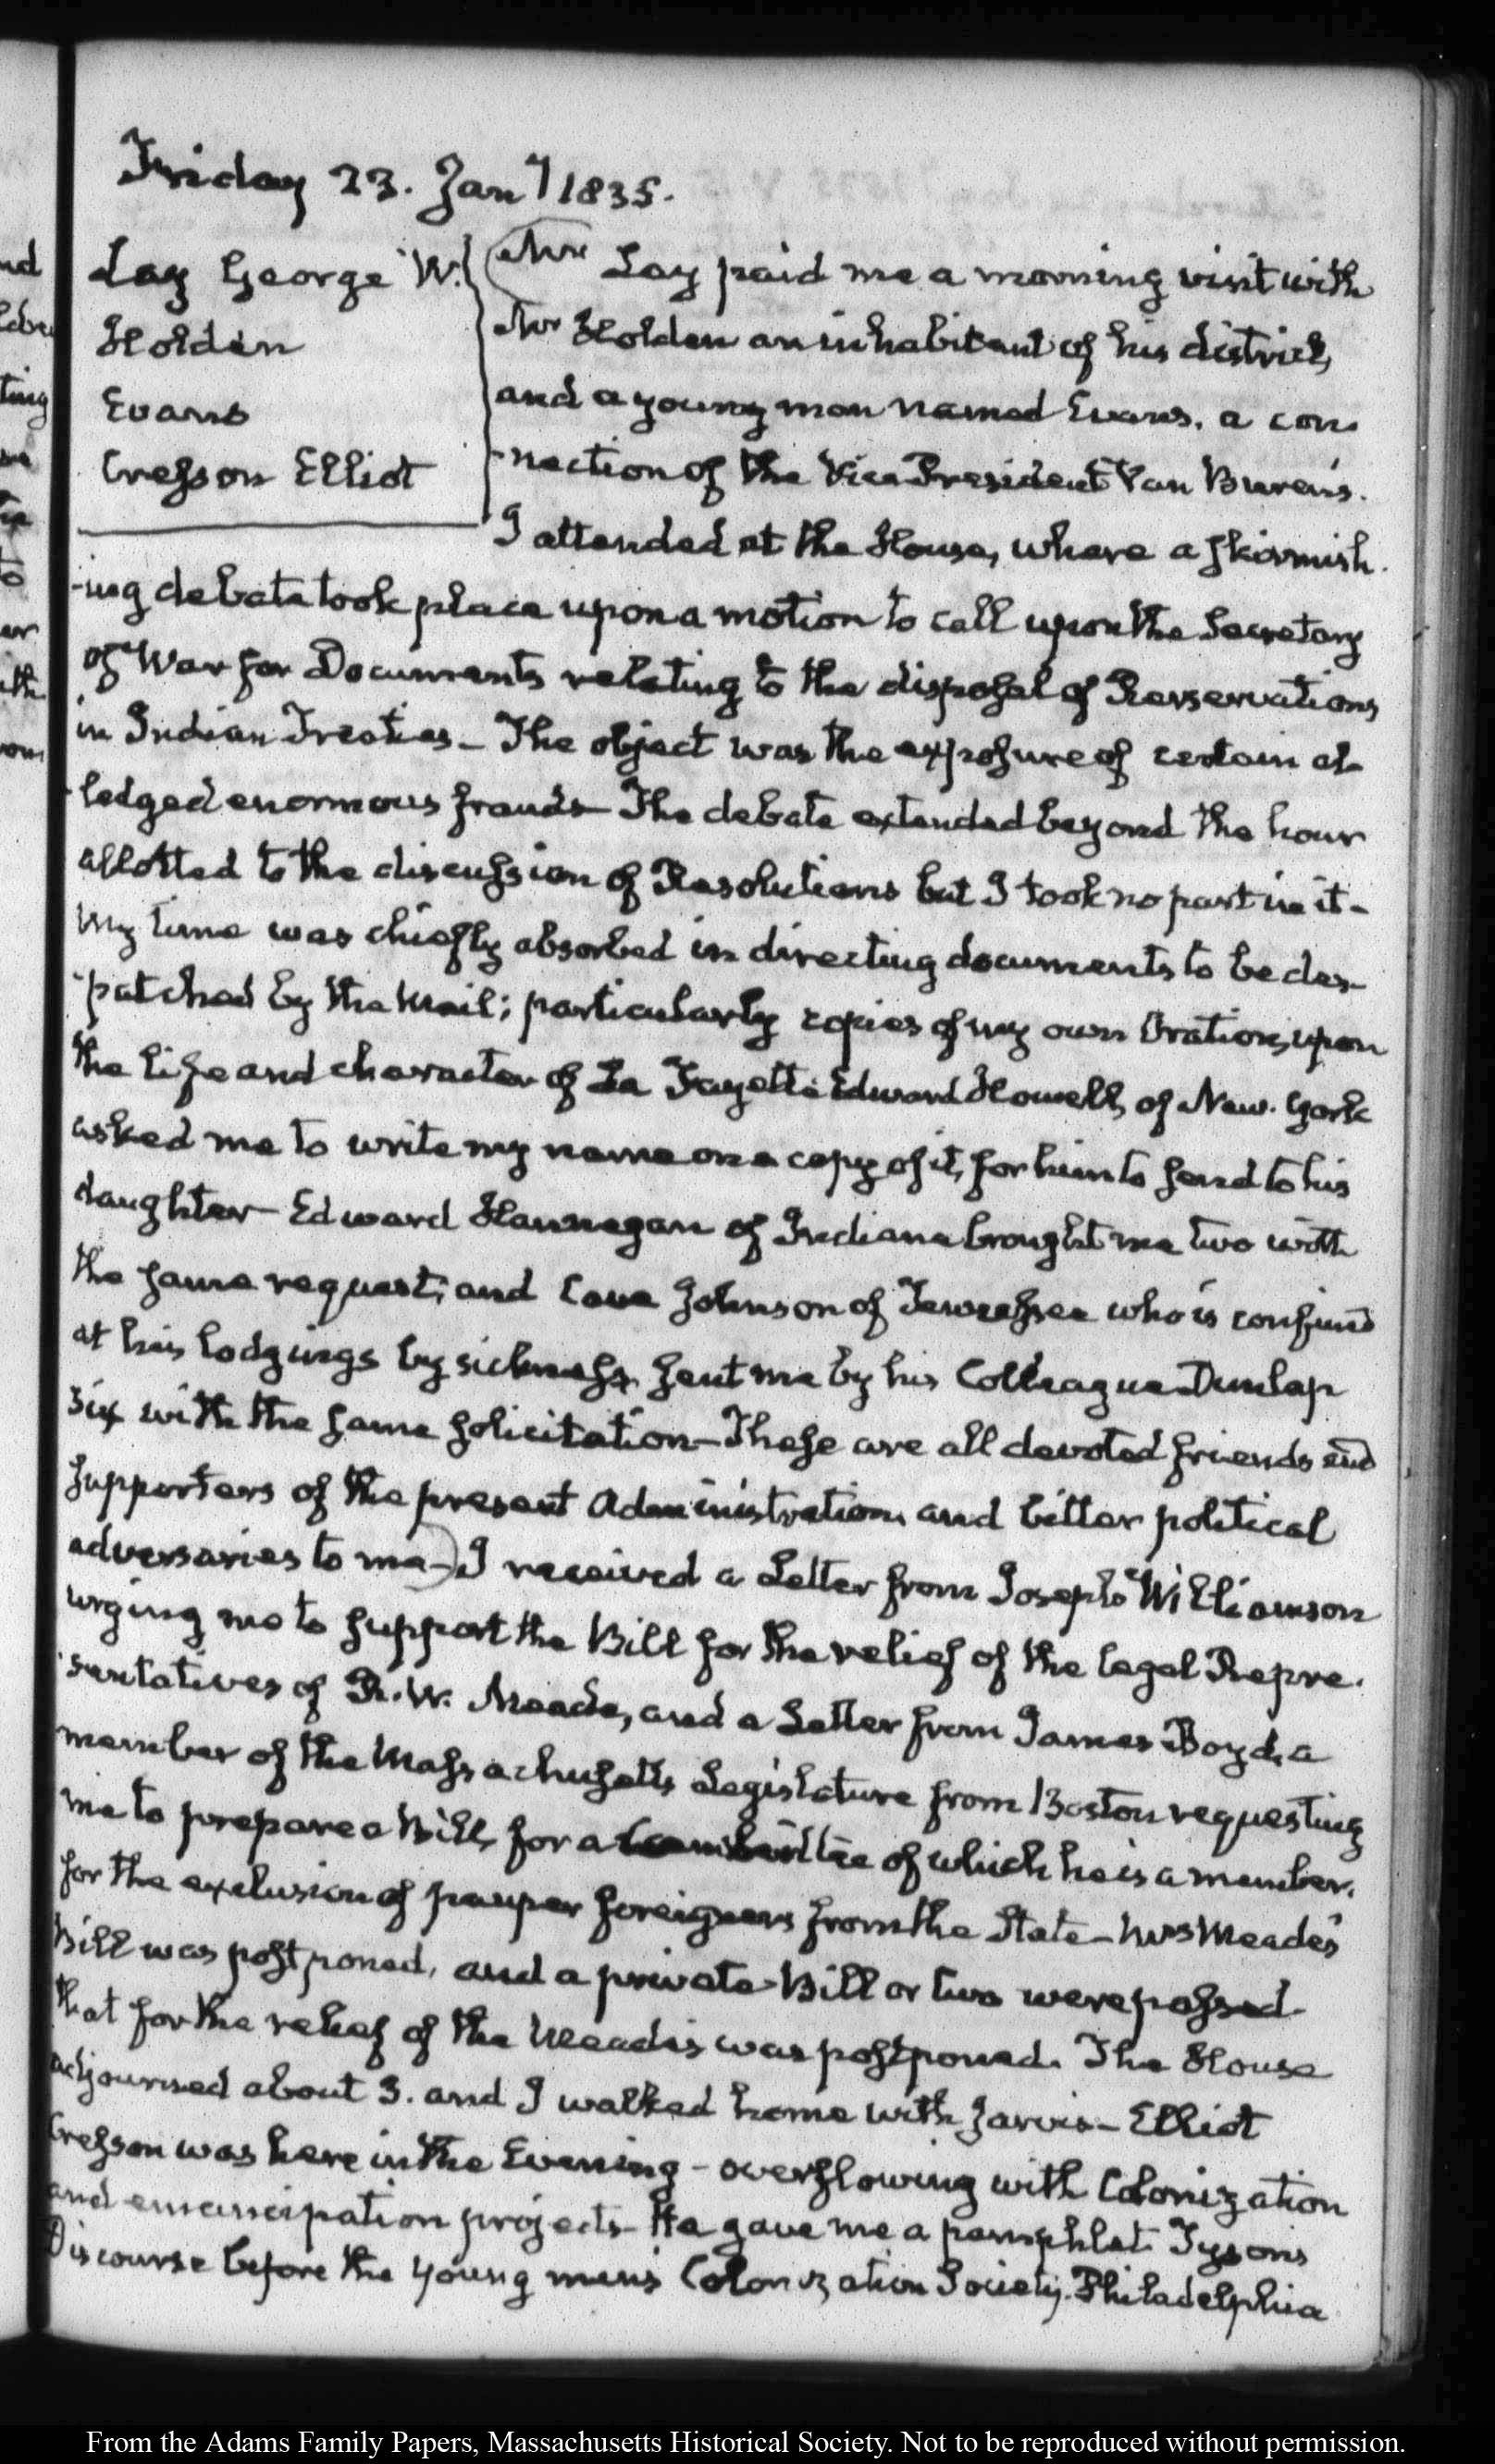 Friday 23. Jany 1835.
Lay George W.
Holden
Evans
Cresson Elliot
Mr Lay paid me a morning visit with
Mr Holden an inhabitant of his district,
and a young man named Evans, a con
-nection of the Vice President Van Buren's.
I attended at the House, where a skirmish.
-ing debate took place upon a motion to call upon the Secretary
of War for Documents relating to the disposal of Reservations
in Indian Treaties_ The object was the exposure of certain al-
-ledged enormous frauds_ The debate extended beyond the hour
allotted to the discussion of Resolutions but I took no part in it-
My time was chiefly absorbed in directing documents to be des-
-patched by the Mail; particularly copies of my own Oration, upon
the life and character of La Fayette Edward Howell, of New-York
asked me to write my name on a copy of it, for him to send to his
daughter_ Edward Hannegan of Indiana brought me two with
the same request; and Cave Johnson of Tennessee who is confined
at his lodgings by sickness, sent me by his Colleague Dunlap
six with the same solicitation_ These are all devoted friends and
supporters of the present Administration, and bitter political
adversaries to me_) I received a Letter from Joseph Williamson
urging me to support the Bill for the relief of the legal Repre.
-sentatives of R. W. Meade, and a Letter from James Boyd, a
member of the Massachusetts Legislature from Boston requesting
me to prepare a Bill, for a Committee of which he is a member.
for the exclusion of pauper foreigners from the State_ Mrs Meade's
Bill was postponed, and a private Bill or two were passed
that for the relief of the Meades was postponed. The House
adjourned about 3. and I walked home with Jarvis_ Elliot
Cresson was here in the Evening - overflowing with Colonization
and emancipation projects_ He gave me a pamphlet Tysons
Discourse before the young men's Colonization Society. Philadelphia
From the Adams Family Papers, Massachusetts Historical Society. Not to be reproduced without permission.